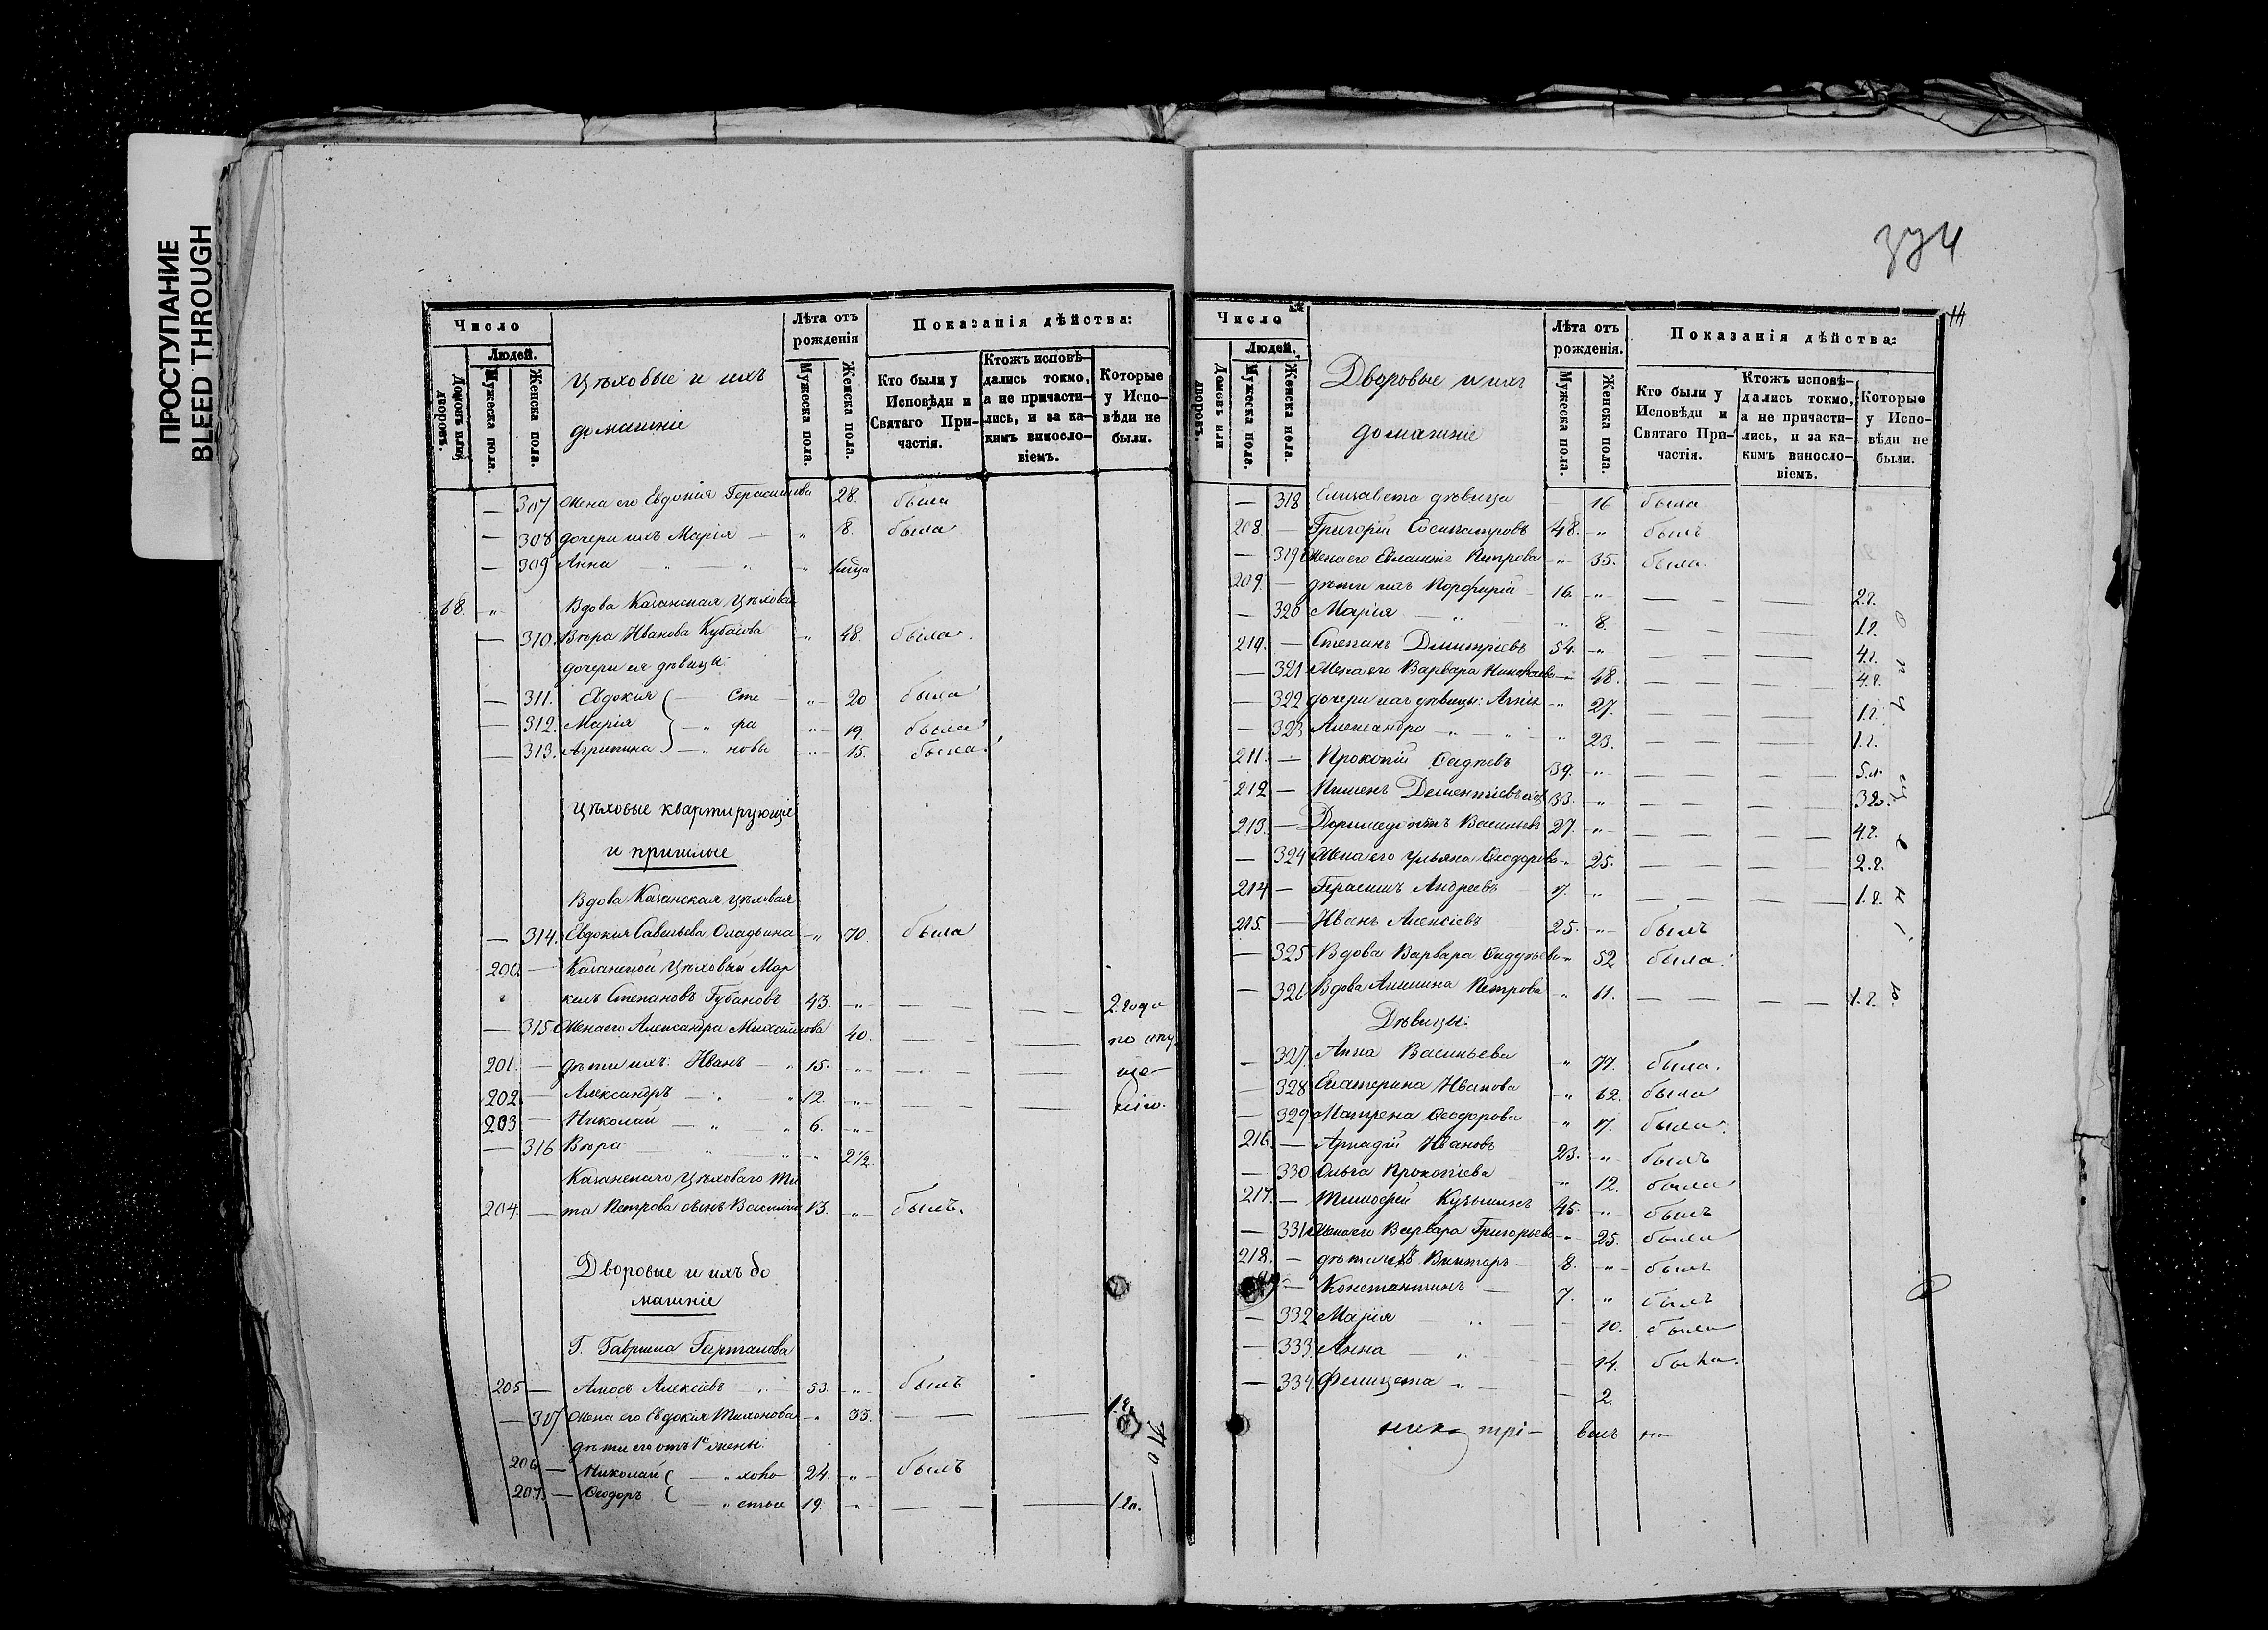 ПРОСТУПАНИЕ
BLEED THROUGH
Число
Людей.
Домовъ или дворовъ.
Мужеска пола.
Женска пола.
Цѣховые и ихъ
домашніе
Лѣта отъ рожденія
Мужеска пола.
Женска пола.
Показанія дѣйства:
Кто были у Исповѣди и Святаго Причастія.
Ктожъ исповѣдались токмо, а не причастились, и за какимъ винословіемъ.
Которые у Исповѣди не были.
— 307 Жена его Евдокія Герасимова 28. была
— 308 дочери ихъ Марія — " 8. была
— 309 Анна — " — " "
68. " Вдова Казанская Цѣховая
— 310. Вѣра Иванова " 48. была.
дочери ея дѣвицы:
— 311. Евдокія — Сте " 20 была
— 312. Марія — " фа " 19. была
— 313. Агрипина — " новы " 15. была.
Цѣховые квартирующіе
и пришлые
Вдова Казанская цѣховая
— 314. Евдокія Савельева Оладьина " 70. была
200. — Казанской Цѣховый Мар
келъ Степановъ Губановъ 43. " — — — — 2 года
— 315 Жена его Александра Михайлова 40. — — — по опу
201. — дѣти ихъ: Иванъ — " 15. " — — — ще
202. — Александръ — " " 12. " — — — нію.
203 — Николай — " " 6. "
— 316 Вѣра — " " " 2½.
Казанскаго Цѣховаго Ти
204. — та Петрова сынъ Василій 13. " былъ.
Дворовые и ихъ до
машніе
Г. Гаврила
205 — Амосъ Алексіевъ — " 53. " былъ
— 317 Жена его Евдокія Тихонова " 33. — — — 1.г.
дѣти его отъ 1й жены:
206 — Николай — " холо 24. " былъ
207. — Ѳеодоръ — " стые 19. " — — — 1.г.
По
374
Число
Людей.
Домовъ или дворовъ.
Мужеска пола.
Женска пола.
Дворовые и ихъ
домашніе
Лѣта отъ рожденія.
Мужеска пола.
Женска пола.
Показанія дѣйства:
Кто были у Исповѣди и Святаго Причастія.
Ктожъ исповѣдались токмо, а не причастились, и за какимъ винословіемъ.
Которые у Исповѣди не были.
— 318 Елизавета дѣвица — 16 была
208. — Григорій Сосипатровъ 48. " былъ
— 319 Жена его Евлампія Петрова " 35. была.
209. — дѣти ихъ Порфирій — 16. " — — — 2.г.
— 320 Марія — " " 8. — — — 1.г.
210. — Степанъ Димитріевъ 54. " — — — 4.г.
— 321 Жена его Варвара Николаева " 48. — — — 4.г.
— 322 дочери ихъ дѣвицы: Анна " 27. — — — 1.г.
— 323 Александра — " — " " 23. — — — 1.г.
211. — Прокопій 39. " — — — — 5.л.
212 — Пименъ Дементіевъ 33. " — — — — 3 го.
213. — Доримедонтъ Васильевъ 27. " — — — — 4.г.
— 324 Жена его Ульяна Ѳеодорова " 25. — — — — 2.г.
214 — Герасимъ Андреевъ 17. " — — — — 1.г.
215. — Иванъ Алексіевъ 25. " былъ
— 325 Вдова Варвара " 52 была.
— 326 Вдова Акилина Петрова " 61. — — — — 1.г.
опущенію.
Дѣвицы:
— 327. Анна Васильева " 77. была.
— 328 Екатерина Иванова " 62. была
— 329 Матрена Ѳеодорова " 17. была.
216. — Аркадій Ивановъ 23. " былъ
— 330 Ольга Прокопіева " 12. была
217. — Тимофей Кузьминъ 45. " былъ
— 331 Жена его Варвара Григорьева " 25. была
218. — дѣти ихъ Викторъ — 8. " былъ
— Константинъ — 7. " былъ
— 332 Марія — " — 10. была
— 333. Анна — " — 14. была.
— 334. Фелицата — " — 2.